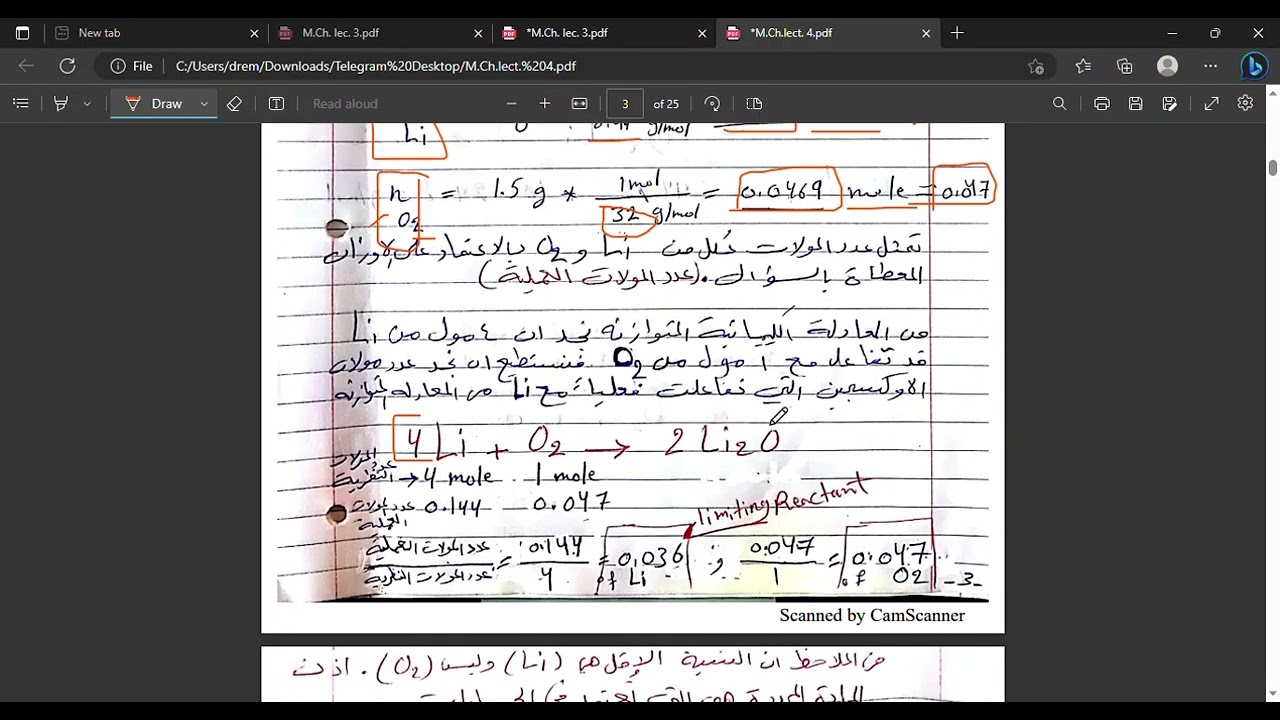 New tab
M.Ch. lec. 3.pdf
*M.Ch. lec. 3.pdf
*M.Ch.lect. 4.pdf
File
C:/Users/drem/Downloads/Telegram%20Desktop/M.Ch.lect.%204.pdf
Draw
Read aloud
3 of 25
Li
g/mol
n O2 = 1.5 g * 1mol / 32 g/mol = 0.0469 mole = 0.047
تمثل عدد المولات لكل من Li و O2 بالاعتماد على الاوزان
المعطاة بالسؤال. (عدد المولات العملية)
من المعادلة الكيميائية المتوازنه نجد ان ٤ مول من Li
قد تفاعل مع 1 مول من O2 فنستطيع ان نجد عدد مولات
الاوكسجين التي تفاعلت فعلياً مع Li من المعادله المتوازنه
4 Li + O2 → 2 Li2O
عدد المولات النظرية → 4 mole 1 mole
عدد المولات العملية 0.144 0.047
limiting Reactant
عدد المولات العملية / عدد المولات النظرية = 0.144 / 4 = 0.036 of Li ; 0.047 / 1 = 0.047 of O2
-3-
Scanned by CamScanner
من الملاحظ ان النسبة الاقل هي (Li) وليس (O2). اذن